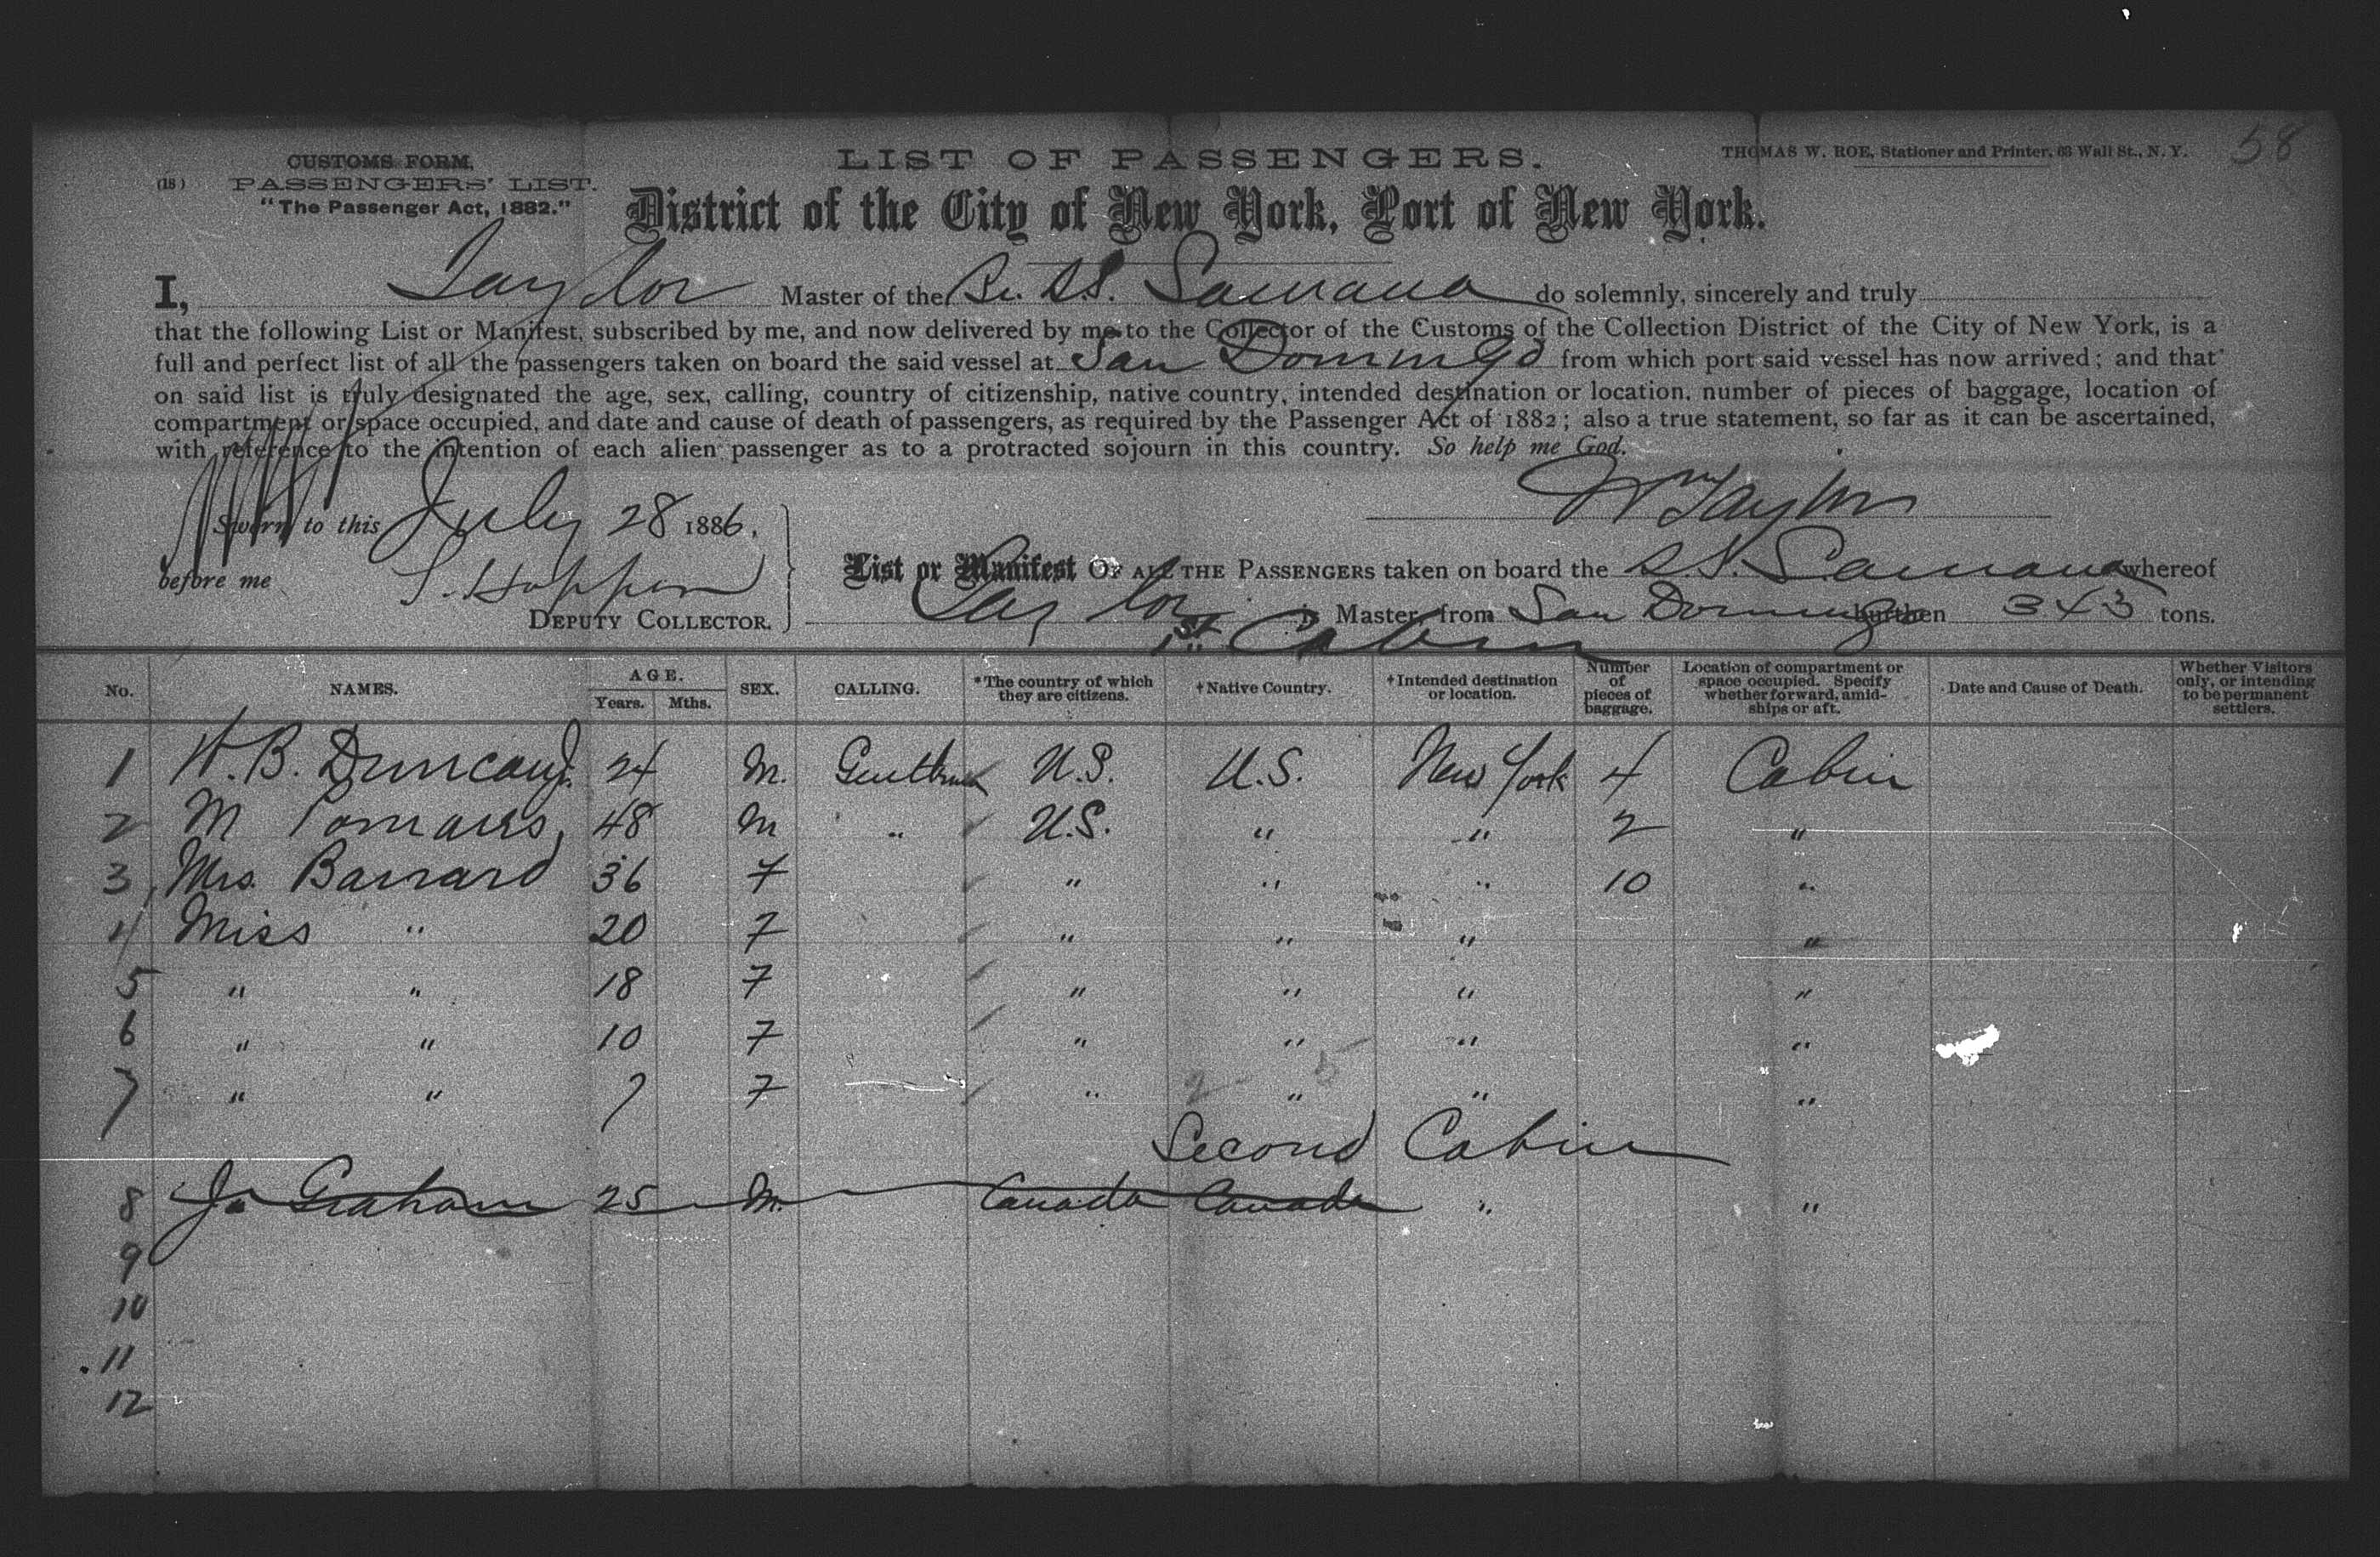 58
CUSTOMS FORM.
(18) PASSENGERS' LIST.
"The Passenger Act, 1882."
LIST OF PASSENGERS.
THOMAS W. ROE, Stationer and Printer, 63 Wall St., N. Y.
District of the City of New York, Port of New York.
I, Taylor Master of the Br. S.S. Samana do solemnly, sincerely and truly
that the following List or Manifest, subscribed by me, and now delivered by me to the Collector of the Customs of the Collection District of the City of New York, is a
full and perfect list of all the passengers taken on board the said vessel at San Domingo from which port said vessel has now arrived; and that
on said list is truly designated the age, sex, calling, country of citizenship, native country, intended destination or location, number of pieces of baggage, location of
compartment or space occupied, and date and cause of death of passengers, as required by the Passenger Act of 1882; also a true statement, so far as it can be ascertained,
with reference to the intention of each alien passenger as to a protracted sojourn in this country. So help me God.
Wm Taylor
Sworn to this July 28 1886,
before me
DEPUTY COLLECTOR.
List or Manifest OF ALL THE PASSENGERS taken on board the S.S. Samana whereof
Taylor is Master, from San Domingo burthen 343 tons.
1st Cabin
No. NAMES. AGE. Years. Mths. SEX. CALLING. *The country of which they are citizens. †Native Country. †Intended destination or location. Number of pieces of baggage. Location of compartment or space occupied. Specify whether forward, amidships or aft. Date and Cause of Death. Whether Visitors only, or intending to be permanent settlers.
1 W. B. Duncan Jr. 24 M. Gentleman U.S. U.S. New York 4 Cabin
2 M 48 M " U.S. " " 2 "
3 Mrs. Barnard 36 F " " " 10 "
4 Miss " 20 F " " " "
5 " " 18 F " " " "
6 " " 10 F " " " "
7 " " 7 F " " " "
Second Cabin
8 Jo Graham 25 M. Canada Canada " "
9
10
11
12